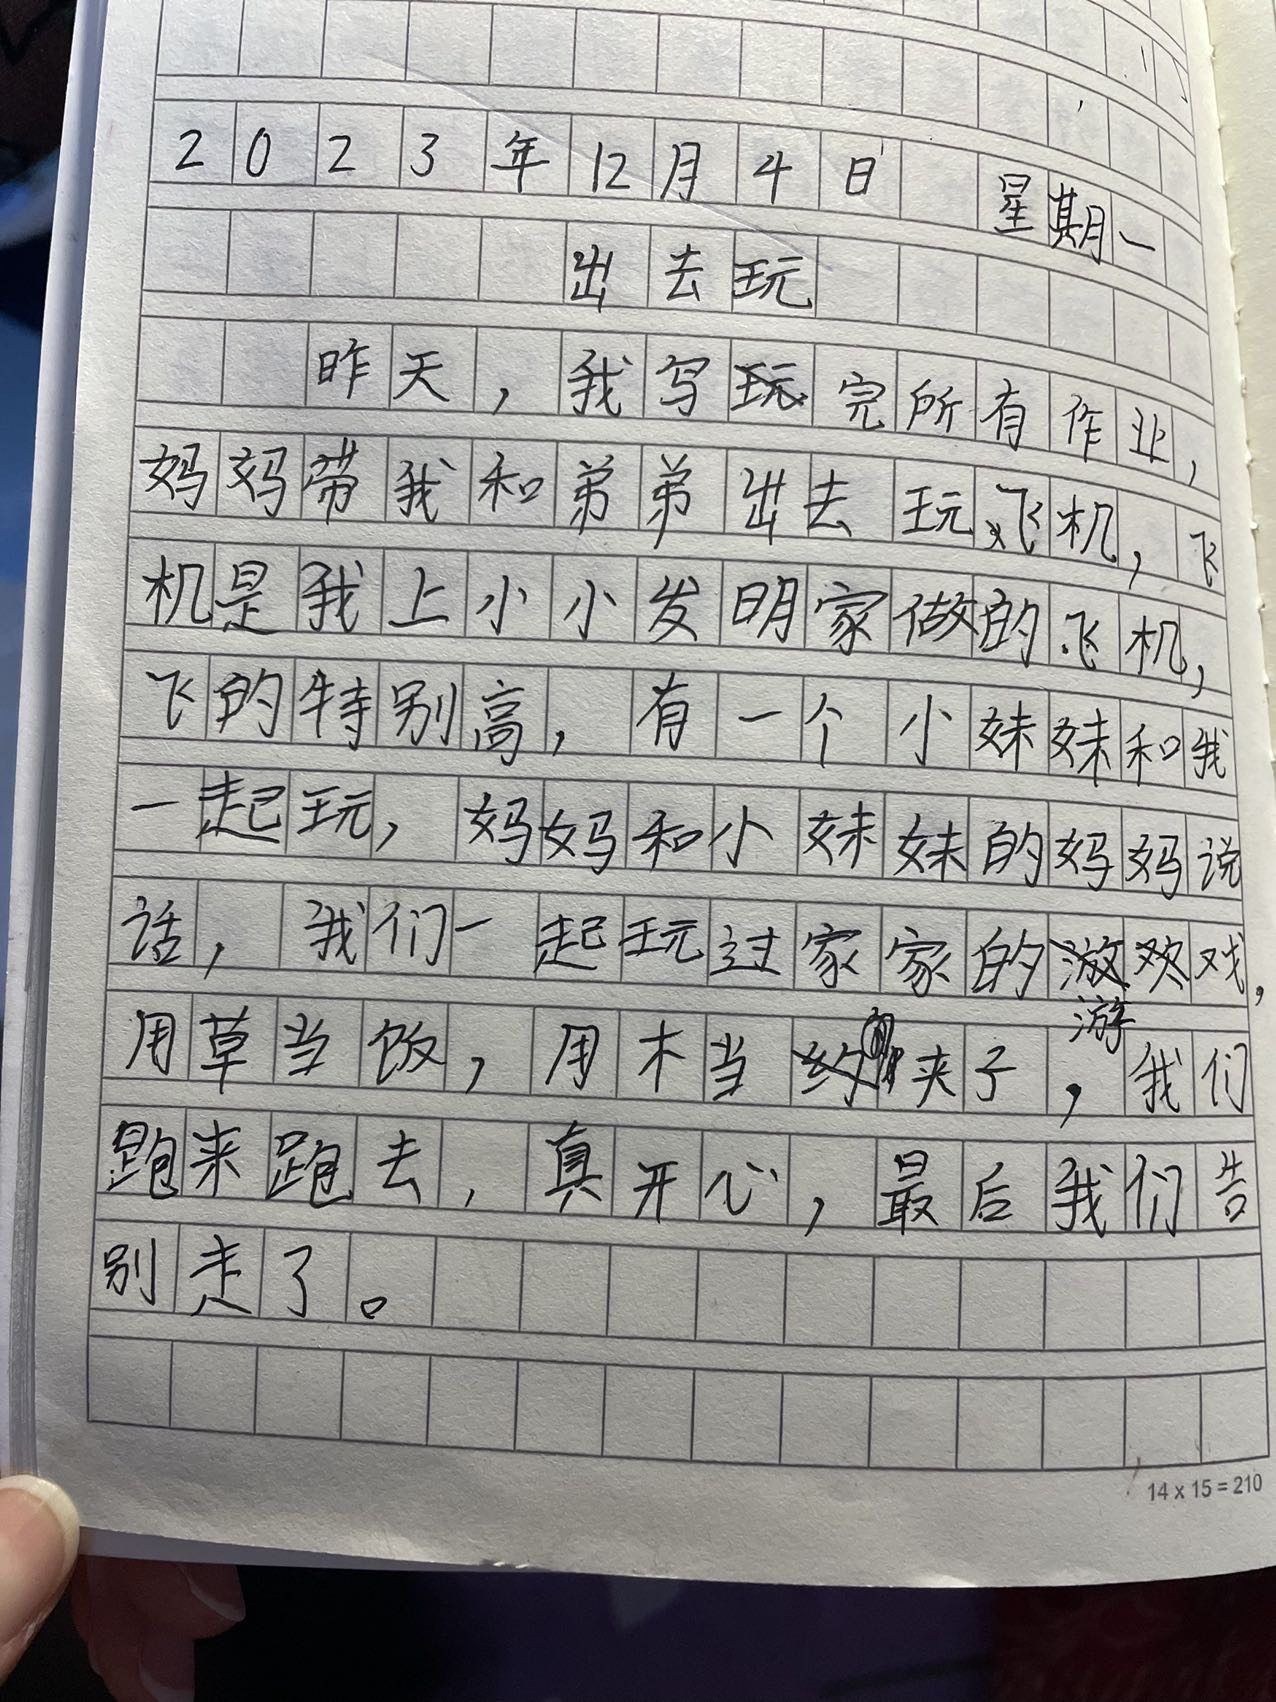 2023年12月4日 星期一
出去玩
昨天，我写完所有作业，
妈妈带我和弟弟出去玩飞机，飞
机是我上小小发明家做的飞机，
飞的特别高，有一个小妹妹和我
一起玩，妈妈和小妹妹的妈妈说
话，我们一起玩过家家的游戏，
用草当饭，用木当夹子，我们
跑来跑去，真开心，最后我们告
别走了。
14 x 15 = 210